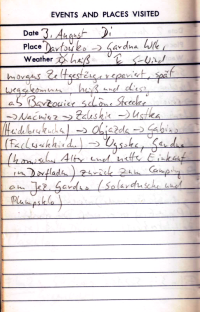 EVENTS AND PLACES VISITED
Date 3. August Di
Place Darłówko → Gardna Wlk.
Weather heiß S-Wind
morgens Zeltgestänge repariert, spät
weggekommen, heiß und diesig,
ab Barzowice schöne Strecke
→ Naćmierz → Zaleskie → Ustka
→ Objazda → Gabino
(Fachwerkkirche) → Wysoka, Gardna
(komischer Alter und netter Einkauf
im Dorfladen) zurück zum Camping
am Jez. Gardno (Solardusche und
Plumpsklo)